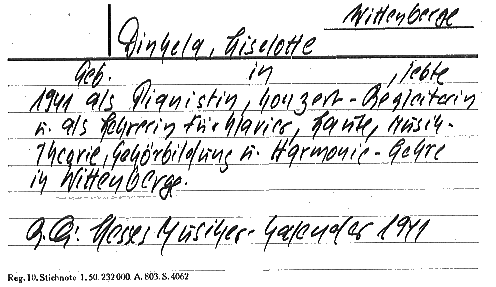 Wittenberge
Dinkela, Liselotte
Geb. in , lebte
1941 als Pianistin, Konzert-Begleiterin
u. als Lehrerin für Klavier, Laute, Musik-
Theorie, Gehörbildung u. Harmonie-Lehre
in Wittenberge.
Hesses Musiker-Kalender 1941
Reg. 10. Stichnote 1. 50. 232000. A. 803. S. 4062